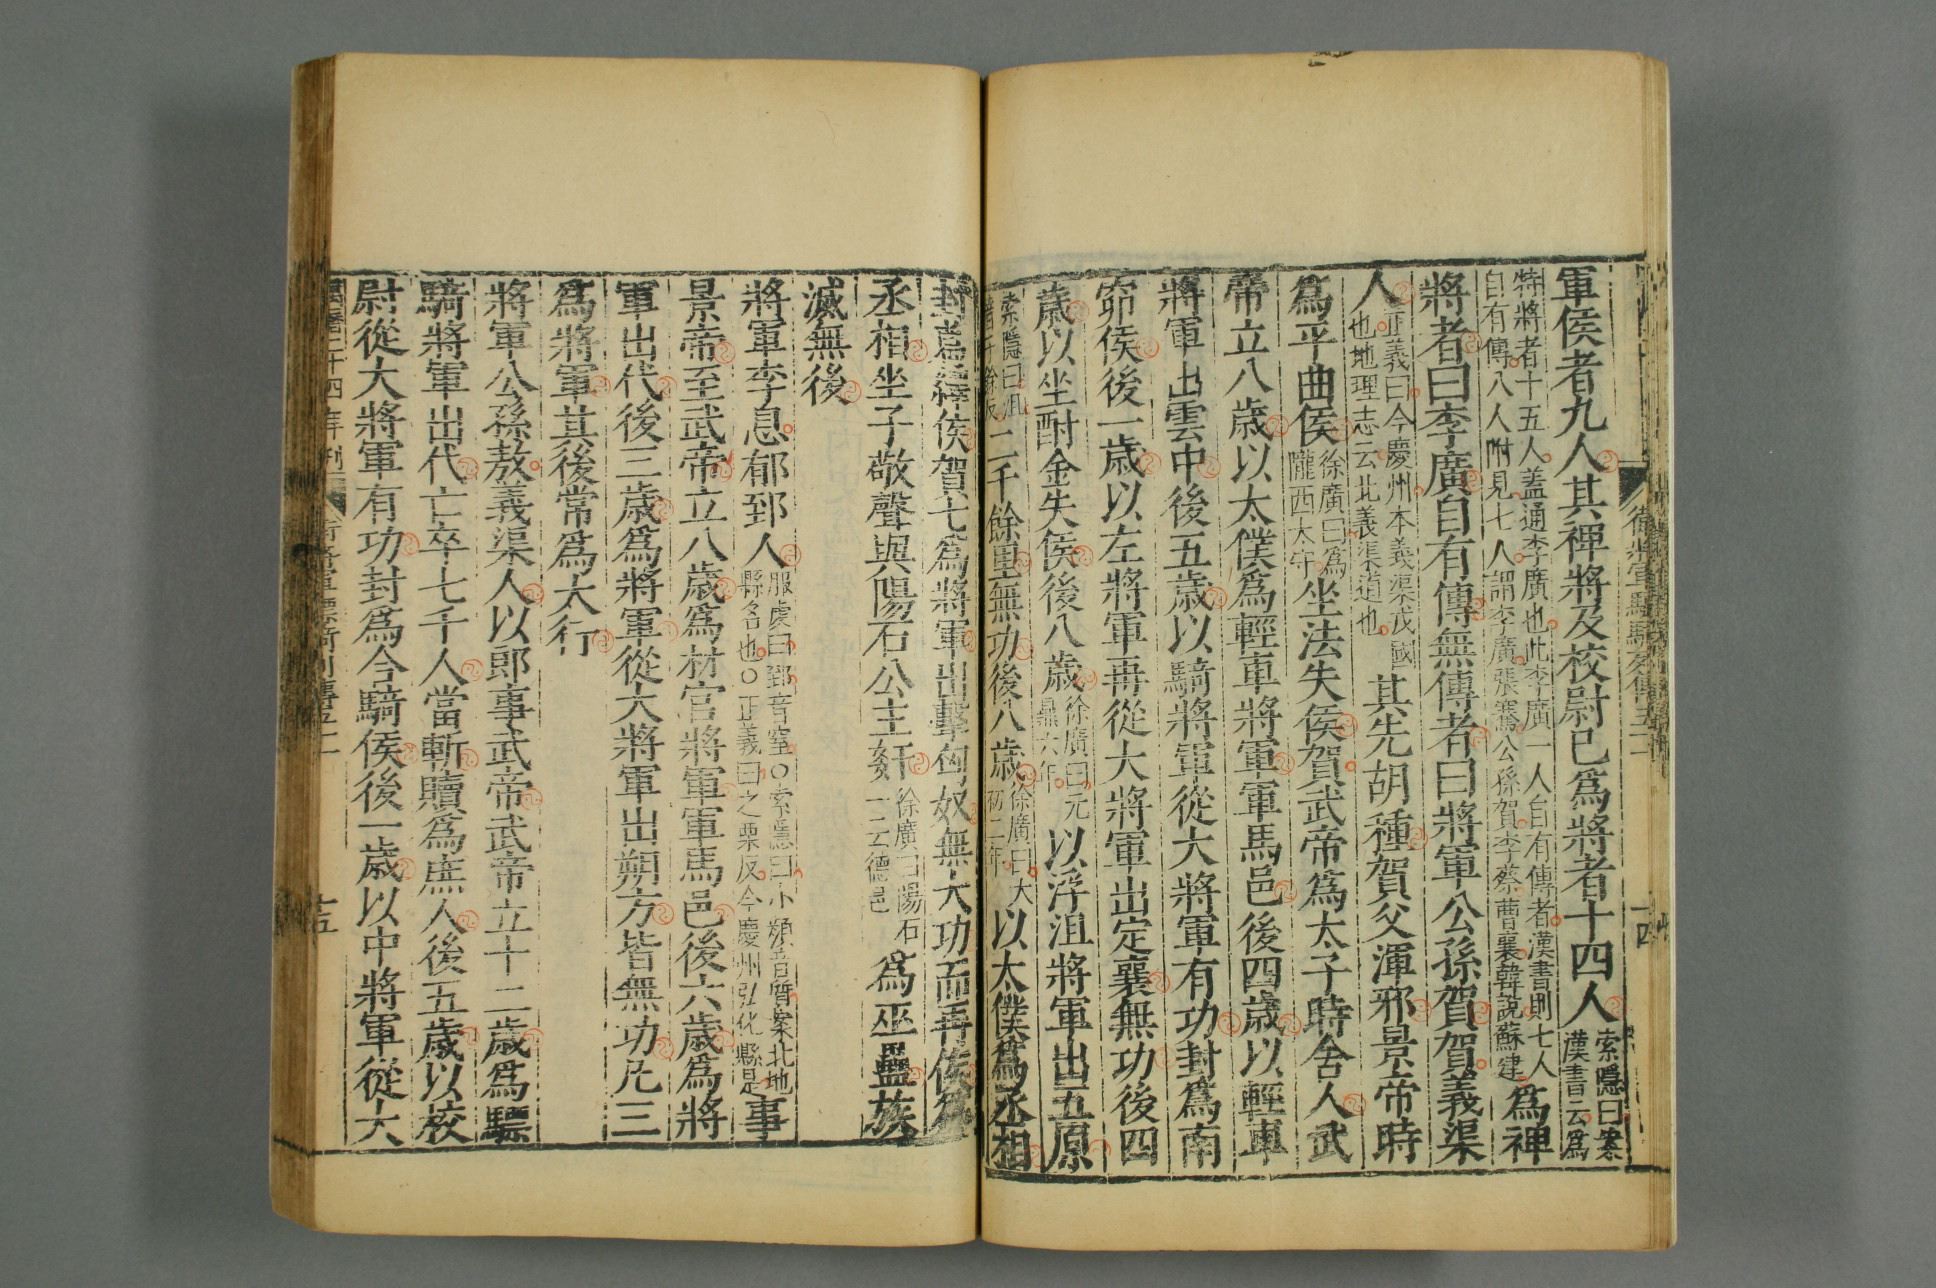 軍侯者九人其禆將及校尉已爲將者十四人索隱曰案漢書云爲
特將者十五人蓋通李廣也此李廣一人自有傳者漢書則七人自有傳八人附見七人謂李廣張騫公孫賀李蔡曹襄韓說蘇建爲禆
將者曰李廣自有傳無傳者曰將軍公孫賀賀義渠
人正義曰今慶州本義渠戎國也地理志云北義渠道也其先胡種賀父渾邪景帝時
爲平曲侯徐廣曰爲隴西太守坐法失侯賀武帝爲太子時舍人武
帝立八歲以太僕爲輕車將軍軍馬邑後四歲以輕車
將軍出雲中後五歲以騎將軍從大將軍有功封爲南
窌侯後一歲以左將軍再從大將軍出定襄無功後四
歲以坐酎金失侯後八歲徐廣曰元鼎六年以浮沮將軍出五原
索隱曰沮二千餘里無功後八歲徐廣曰太初二年以太僕爲丞相
封爲葛繹侯賀七爲將軍出擊匈奴無大功而再侯爲
丞相坐子敬聲與陽石公主姦徐廣曰陽石一云德邑爲巫蠱族
滅無後
將軍李息郁郅人服虔曰郅音窒○索隱曰小顏音質案北地縣名也○正義曰之栗反今慶州弘化縣是事
景帝至武帝立八歲爲材官將軍軍馬邑後六歲爲將
軍出代後三歲爲將軍從大將軍出朔方皆無功凡三
爲將軍其後常爲大行
將軍公孫敖義渠人以郎事武帝武帝立十二歲爲驃
騎將軍出代亡卒七千人當斬贖爲庶人後五歲以校
尉從大將軍有功封爲合騎侯後一歲以中將軍從大
十五